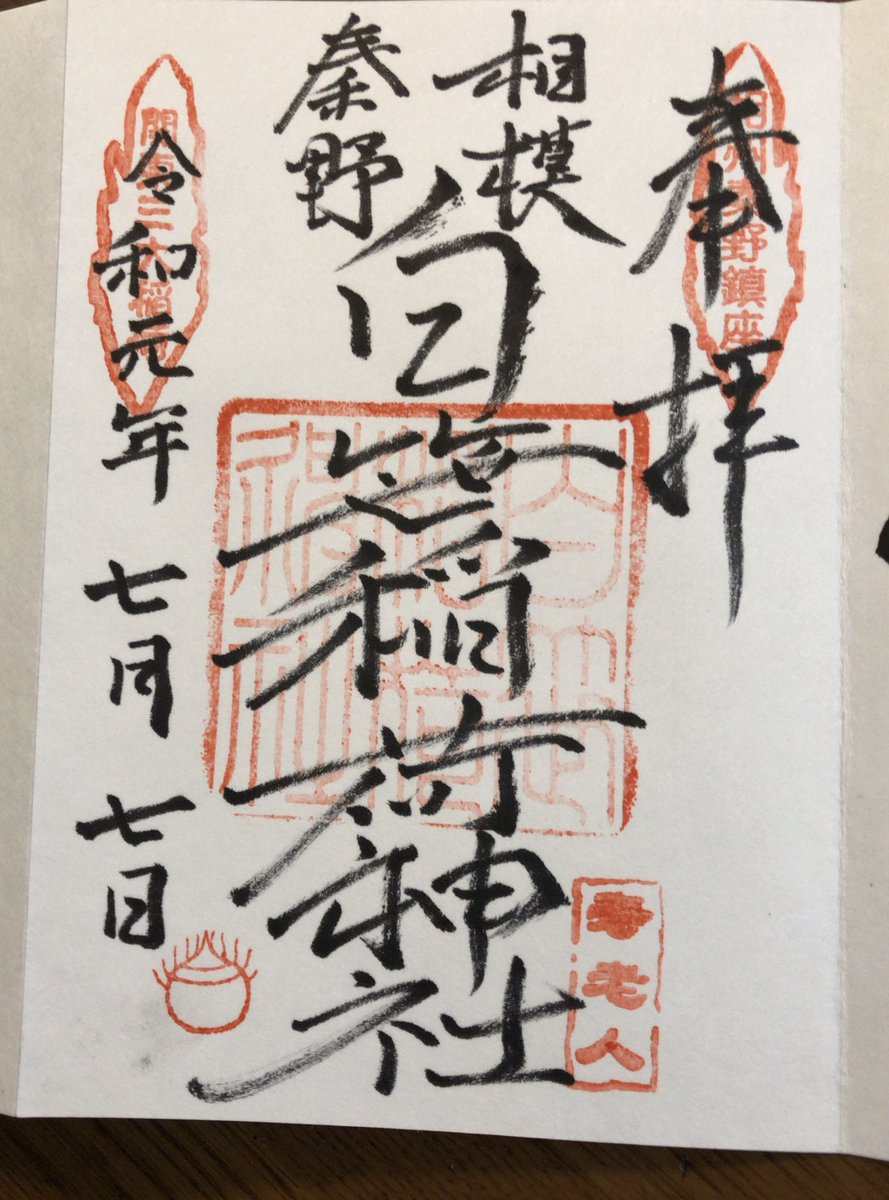 奉拝
相州秦野鎮座
相模
秦野
白笹稲荷神社
寿老人
令和元年七月七日
関東三大稲荷